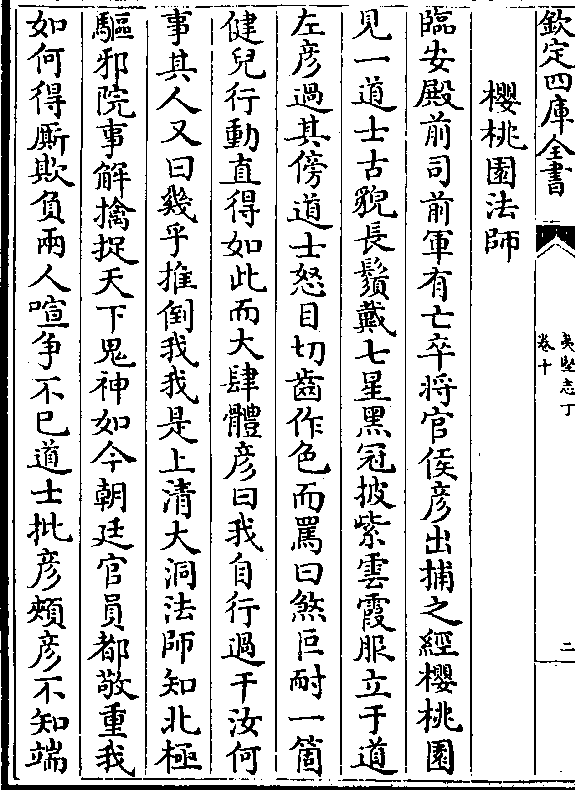 欽定四庫全書
夷堅志丁
卷十
二
櫻桃園法師
臨安殿前司前軍有亡卒將官侯彦出捕之經櫻桃園
見一道士古貌長鬚戴七星黑冠披紫雲霞服立于道
左彦過其傍道士怒目切齒作色而罵曰煞叵耐一箇
健兒行動直得如此而大肆體彦曰我自行過干汝何
事其人又曰幾乎推倒我我是上清大洞法師知北極
驅邪院事解擒捉天下鬼神如今朝廷官員都敬重我
如何得厮欺負兩人喧争不已道士批彦頰彦不知端